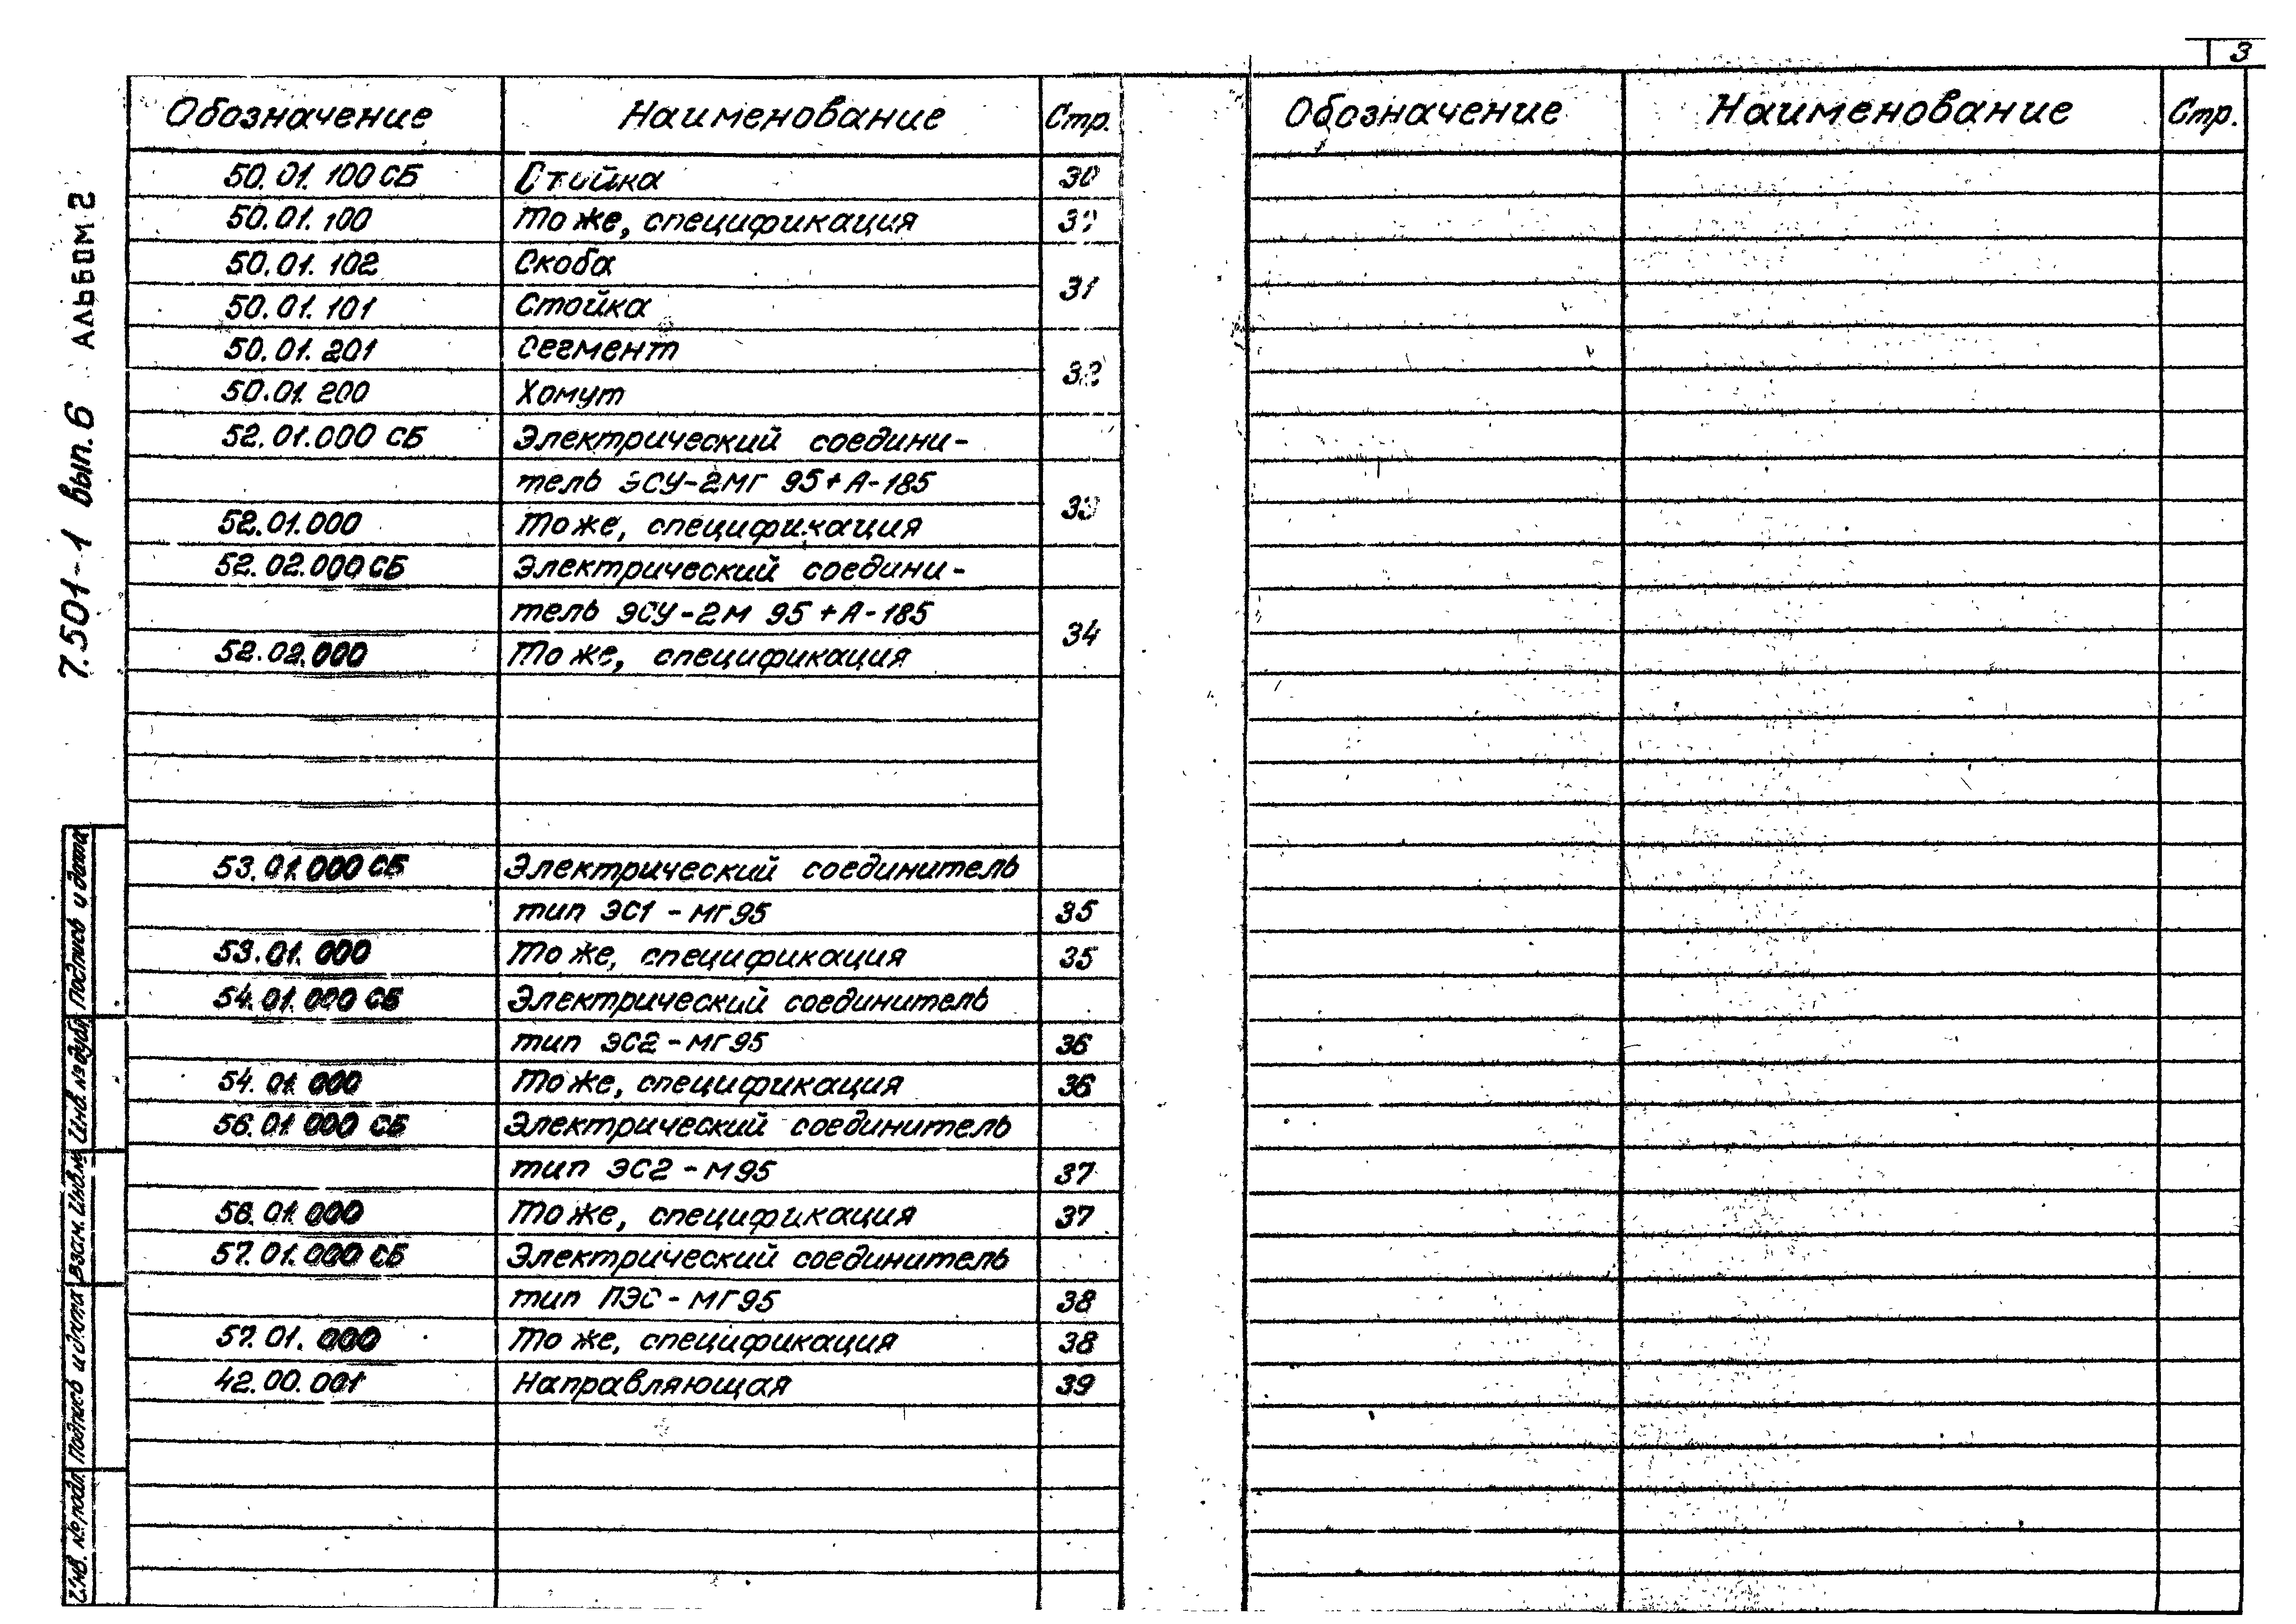 3
7.501-1 вып. 6 АЛЬБОМ 2
Обозначение Наименование Стр.
50.01.100 СБ Стойка 30
50.01.100 То же, спецификация
50.01.102 Скоба
31
50.01.101 Стойка
50.01.201 Сегмент
32
50.01.200 Хомут
52.01.000 СБ Электрический соедини-
тель ЭСУ-2МГ 95+А-185
33
52.01.000 То же, спецификация
52.02.000 СБ Электрический соедини-
тель ЭСУ-2М 95+А-185
34
52.02.000 То же, спецификация
53.01.000 СБ Электрический соединитель
тип ЭС1-МГ95 35
53.01.000 То же, спецификация 35
54.01.000 СБ Электрический соединитель
тип ЭС2-МГ95 36
54.01.000 То же, спецификация 36
56.01.000 СБ Электрический соединитель
тип ЭС2-М95 37
56.01.000 То же, спецификация 37
57.01.000 СБ Электрический соединитель
тип ПЭС-МГ95 38
57.01.000 То же, спецификация 38
42.00.001 Направляющая 39
Обозначение Наименование Стр.
Инв. № подл. Подпись и дата Взам. Инв. № Инв. № дубл. Подпись и дата